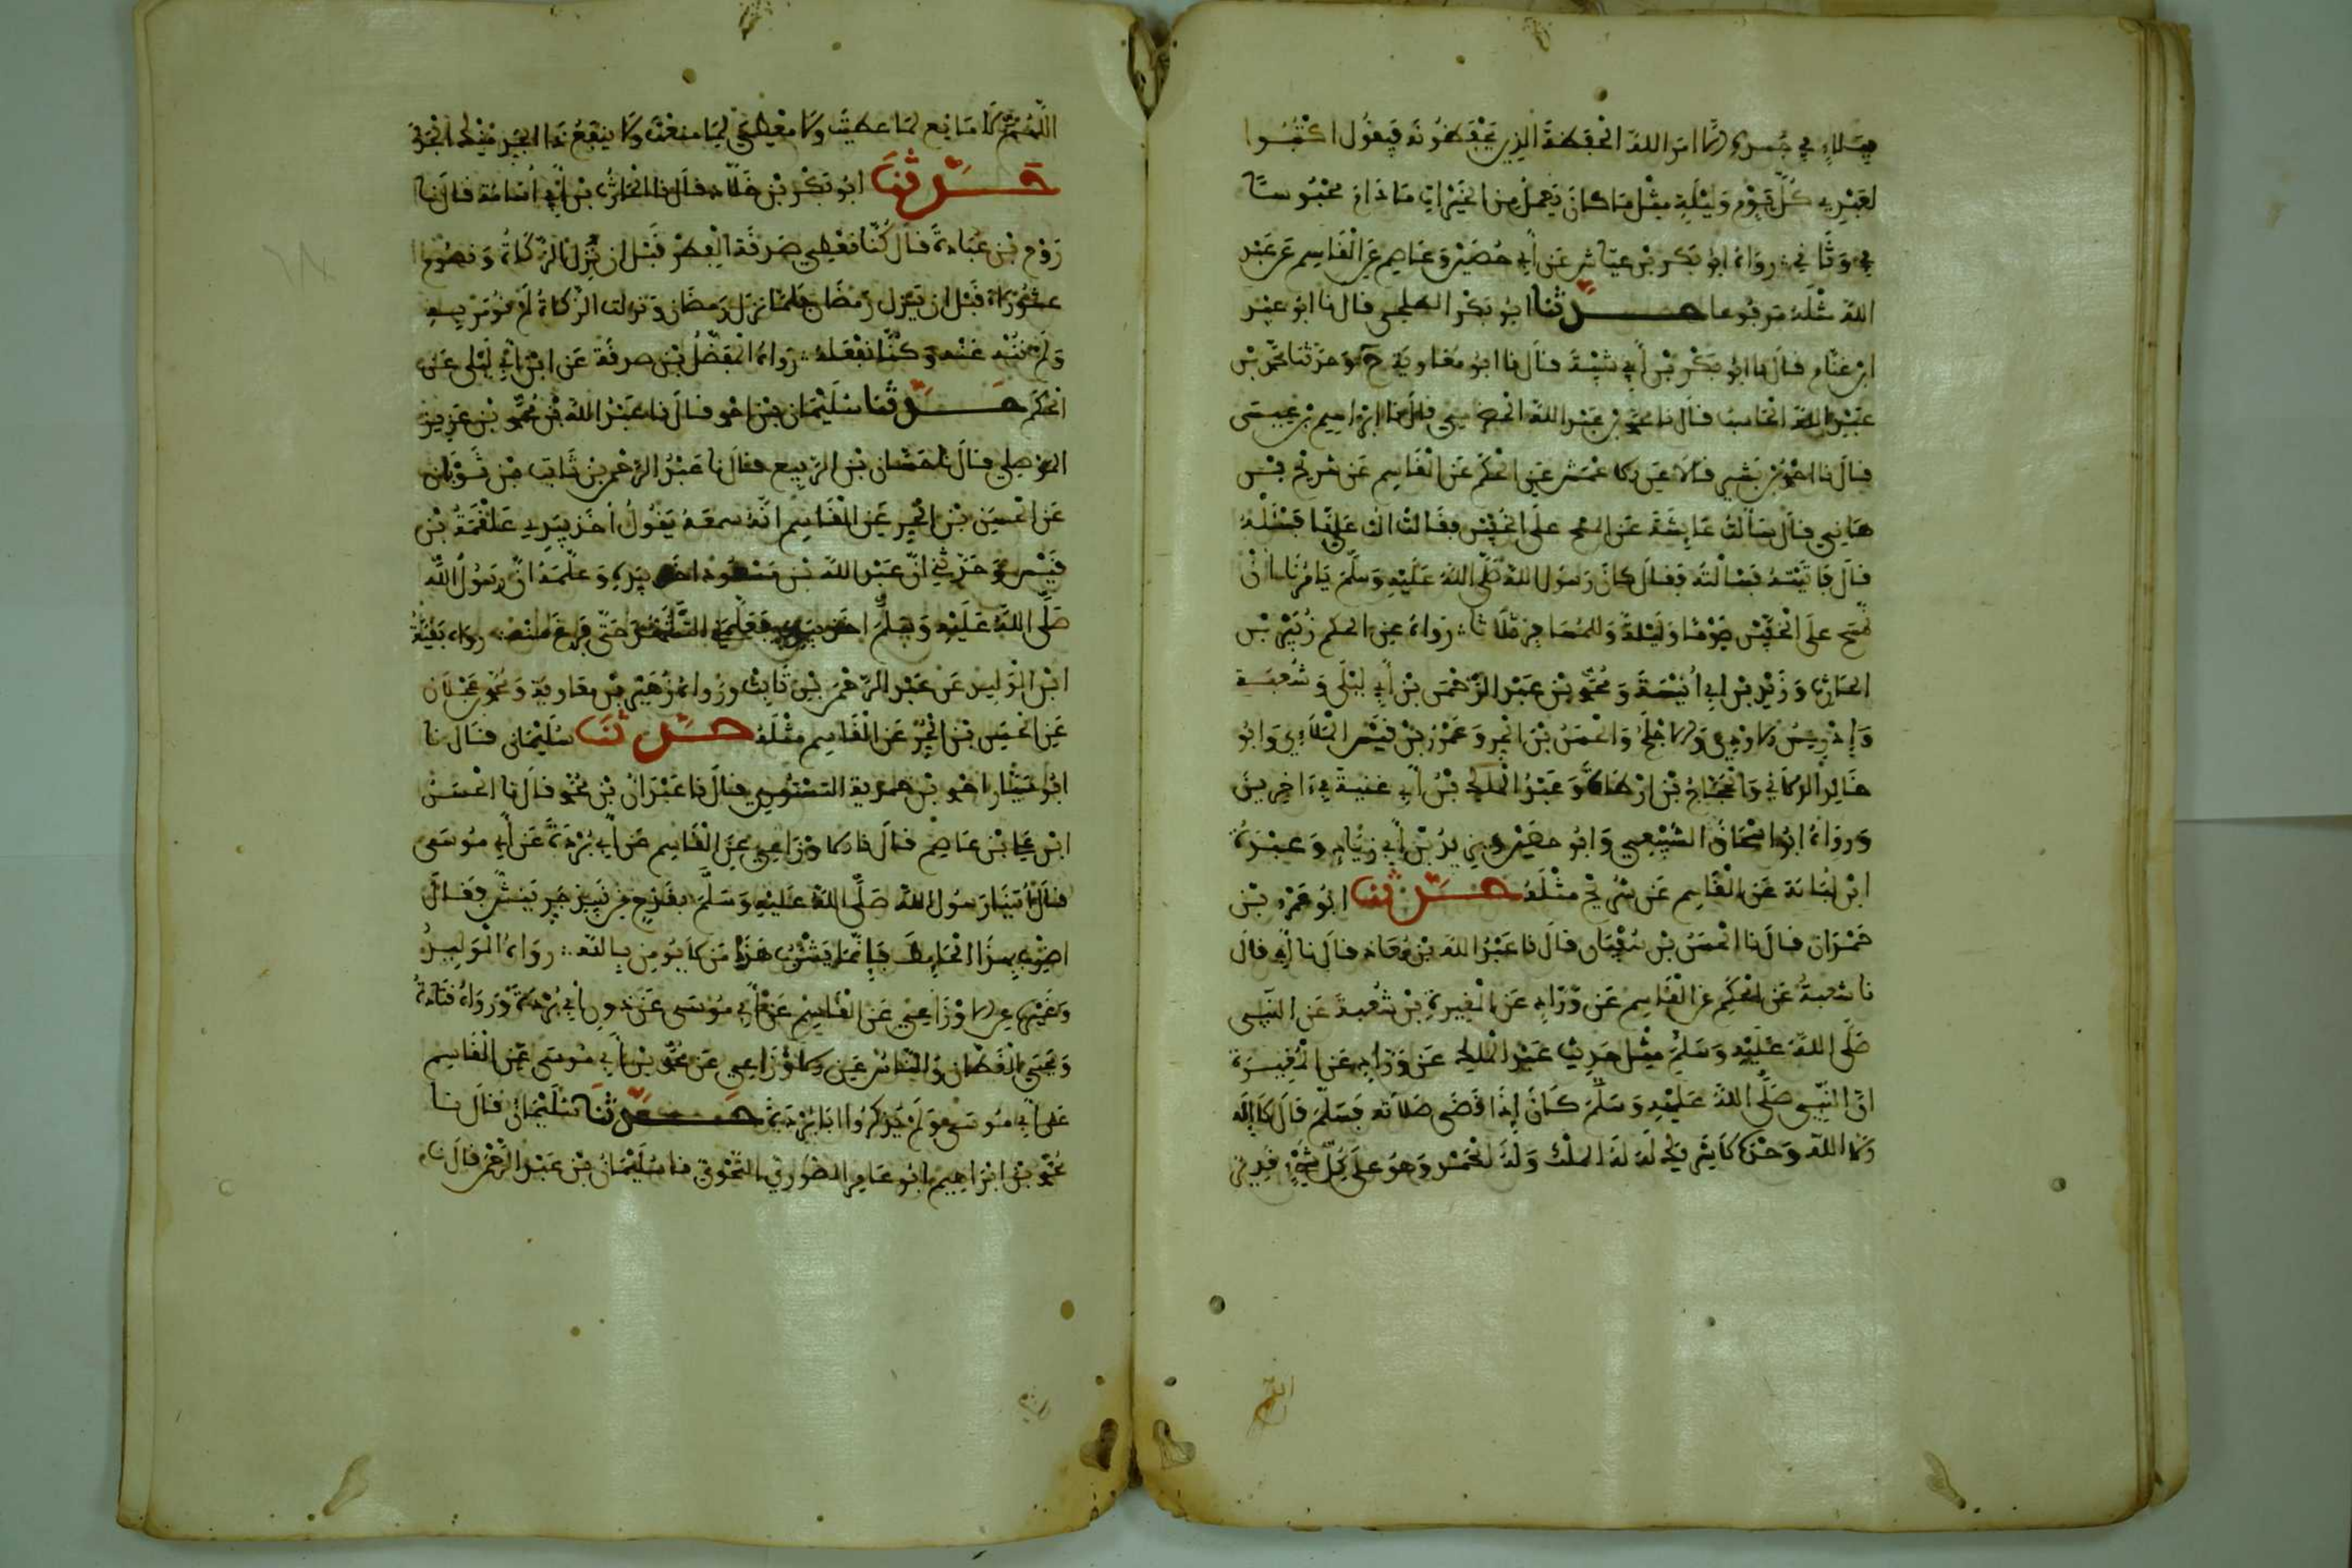 ببلاء في جسده إلا أمر الله الحفظة الذين يحفظونه فيقول اكتبوا
لعبدي كل يوم وليلة مثل ما كان يعمل من الخيرات ما دام محبوسا
في وثاقي رواه أبو بكر بن عياش عن أبي حصين وعاصم عن القاسم عن عبد
الله مثله مرفوعا حدثنا أبو بكر الطلحي قال نا أبو عبيد
ابن غنام قال نا أبو بكر بن أبي شيبة قال نا أبو معاوية ح وحدثنا محمد بن
عبيد الله الكاتب قال نا محمد بن عبد الله الحضرمي قال نا إبراهيم بن عيسى
قال نا أحمد بن بشير قالا عن الأعمش عن الحكم عن القاسم عن شريح بن
هانئ قال سألت عائشة عن المسح على الخفين فقالت ائت عليا فسئله
قال فأتيته فسألته فقال كان رسول الله صلى الله عليه وسلم يأمرنا أن
نمسح على الخفين يوما وليلة وللمسافر ثلاثا رواه عن الحكم زبيد بن
الحارث وزيد بن أبي أنيسة ومحمد بن عبد الرحمن بن أبي ليلى وشعبة
وإدريس الأودي والأجلح والحسن بن الحر وعمرو بن قيس الملائي وأبو
خالد الدالاني والحجاج بن أرطاة وعبد الملك بن أبي غنية في آخرين
ورواه أبو إسحاق السبيعي وأبو حصين ويزيد بن أبي زياد وعبدة
ابن لبابة عن القاسم عن شريح مثله حدثنا أبو عمرو بن
حمدان قال نا الحسن بن سفيان قال نا عبد الله بن معاذ قال نا أبي قال
نا شعبة عن الحكم عن القاسم عن وراد عن المغيرة بن شعبة عن النبي
صلى الله عليه وسلم مثل حديث عبد الملك عن وراد عن المغيرة
أن النبي صلى الله عليه وسلم كان إذا قضى صلاته فسلم قال لا إله
إلا الله وحده لا شريك له له الملك وله الحمد وهو على كل شيء قدير
اللهم
اللهم لا مانع لما أعطيت ولا معطي لما منعت ولا ينفع ذا الجد منك الجد
حدثنا أبو بكر بن خلاد قال نا الحارث بن أبي أسامة قال نا
روح بن عبادة قال كنا نعطي صدقة الفطر قبل أن تنزل الزكاة ونصوم
عشوراء قبل أن ينزل رمضان فلما نزل رمضان ونزلت الزكاة لم نؤمر به
ولم ننه عنه وكنا نفعله رواه المفضل بن صدقة عن ابن أبي ليلى عن
الحكم حدثنا سليمان بن أحمد قال نا عبد الله بن محمد بن عزيز
الموصلي قال نا غسان بن الربيع فقال نا عبد الرحمن بن ثابت بن ثوبان
عن الحسين بن الحر عن القاسم أنه سمعه يقول أخذ بيدي علقمة بن
قيس وحدثني أن عبد الله بن مسعود أخذ بيده وعلمه أن رسول الله
صلى الله عليه وسلم أخذ بيدي فعلمني التشهد حتى فرغ منه رواه بقية
ابن الوليد عن عبد الرحمن بن ثابت ورواه زهير بن معاوية ومحمد عجلان
عن الحسين بن الحر عن القاسم مثله حدثنا سليمان قال نا
أبو سيار أحمد بن حمويه التستري قال نا عبدان بن محمد قال نا الحسن
ابن علي بن عاصم قال نا الأوزاعي عن القاسم عن أبي بردة عن أبي موسى
قال أتينا رسول الله صلى الله عليه وسلم بقدح من نبيذ جر ينش فقال
اضرب بهذا الحائط فإنما يشرب هذا من لا يؤمن بالله رواه الوليد
وغيره عن الأوزاعي عن القاسم عن أبي موسى عن دون أبي بردة ورواه قتادة
ويحيى القطان والناس عن الأوزاعي عن محمد بن أبي موسى عن القاسم
عن أبي موسى ولم يذكروا أبا بردة حدثنا سليمان قال نا
محمد بن إبراهيم أبو عامر الصوري النحوي نا سليمان بن عبد الرحمن قال نا